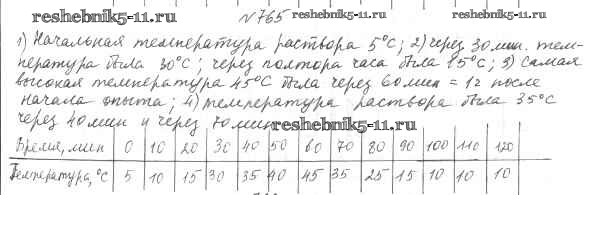 reshebnik5-11.ru №765 reshebnik5-11.ru
1) Начальная температура раствора 5°C; 2) через 30 мин. тем-
пература была 30°C; через полтора часа была 15°C; 3) самая
высокая температура 45°C была через 60 мин = 1ч после
начала опыта; 4) температура раствора была 35°C
через 40 мин и через 70 мин reshebnik5-11.ru
Время, мин 0 10 20 30 40 50 60 70 80 90 100 110 120
Температура, °C 5 10 15 30 35 40 45 35 25 15 10 10 10